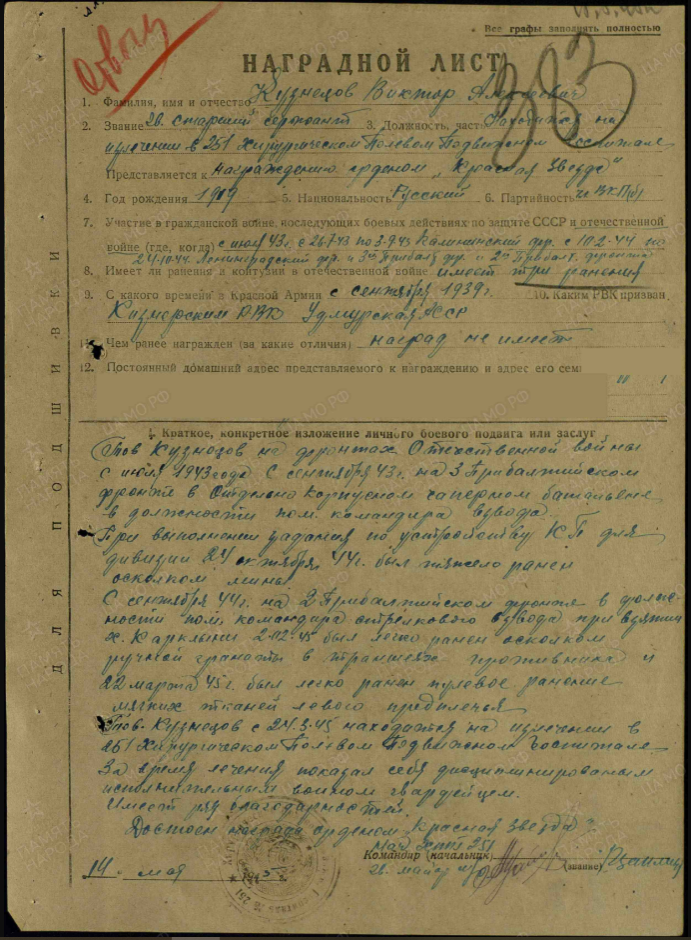 Все графы заполнить полностью
НАГРАДНОЙ ЛИСТ
383
1. Фамилия, имя и отчество Кузнецов Виктор Алексеевич
2. Звание гв. старший сержант 3. Должность, часть Находится на
излечении в 251 Хирургическом Полевом Подвижном Госпитале
Представляется к награждению орденом „Красная Звезда"
4. Год рождения 1919 5. Национальность Русский 6. Партийность чл ВКП(б)
7. Участие в гражданской войне, последующих боевых действиях по защите СССР и отечественной
войне (где, когда) с июля 43г. с 26.7.43 по 3.9.43 Калининский фр. с 10.2.44 по
24.10.44. Ленинградский фр. и 3ий Прибалт. фр. и 2ой Прибалт. фронта
8. Имеет ли ранения и контузии в отечественной войне имеет три ранения
9. С какого времени в Красной Армии с сентября 1939г. 10. Каким РВК призван
Кизнерским РВК Удмурская АССР
11. Чем ранее награжден (за какие отличия) наград не имеет
12. Постоянный домашний адрес представляемого к награждению и адрес его семьи
ДЛЯ ПОДШИВКИ
I. Краткое, конкретное изложение личного боевого подвига или заслуг
Тов Кузнецов на фронтах Отечественной войны
с июля 1943 года С сентября 43г. на 3 Прибалтийском
фронте в Отдельно Корпусном саперном батальене
в должности пом. командира взвода.
При выполнении задания по устройству КП для
дивизии 24 октября 44г. был тяжело ранен
осколком мины
С сентября 44г. на 2 Прибалтийском фронте в долж-
ности пом. командира стрелкового взвода при взятии
х. Карклыни 2-02-45 был легко ранен осколком
ручной гранаты в траншеях противника и
22 марта 45г. был легко ранен пулевое ранение
мягких тканей левого предплечья
Тов. Кузнецов с 24.3.45 находится на излечении в
251 Хирургическом Полевом Подвижном Госпитале
За время лечения показал себя дисциплинированым
исполнительным воином гвардейцем.
Имеет ряд благодарностей.
Достоен награды орденом „Красная Звезда"
Нач ХППГ 251
Командир (начальник)
гв. майор м/с (звание)
14. мая